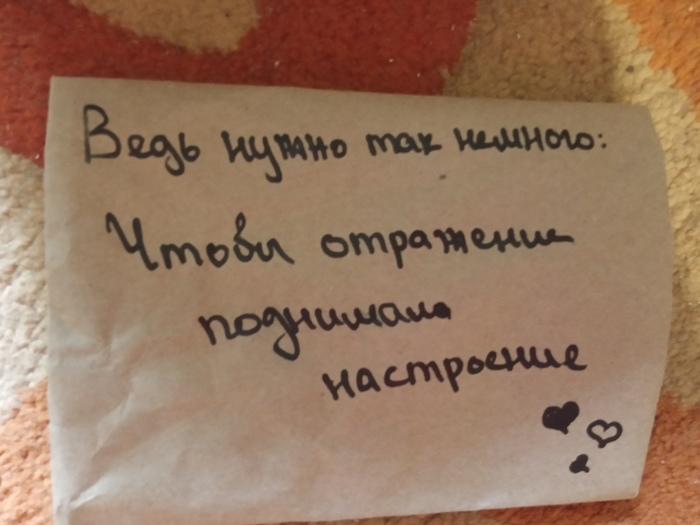 Ведь нужно так немного:
Чтобы отражение
поднимало
настроение